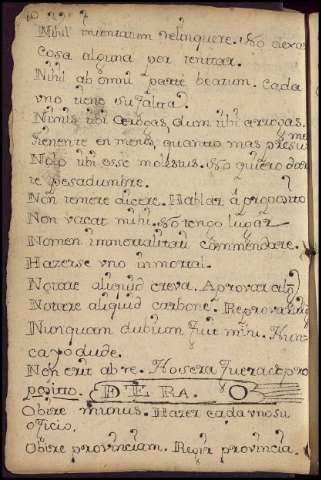 Nihil intentatum relinquere. No dexar
cosa alguna por tentar.
Nihil ab omni parte beatum. Cada
vno tiene su falta.
Nimis tibi derogas, dum tibi arrogas.
tienente en menos, quanto mas presu
me
Nolo tibi esse molestus. No quiero dar
te pesadumbre.
Non temere dicere. Hablar à proposito
Non vacat mihi. No tengo lugar
Nomen immortalitati commendare.
Hazerse vno inmortal.
Notare aliquid creta. Aprovar algo
Notare aliquid carbone. Reprovar algo
Nunquam dubium fuit mihi. Nun
ca yo dude.
Non erit ab re. No sera fuera de pro
posito. DE LRA. O
Obire munus. Hazer cada vno su
oficio.
Obire provinciam. Regir provincia.